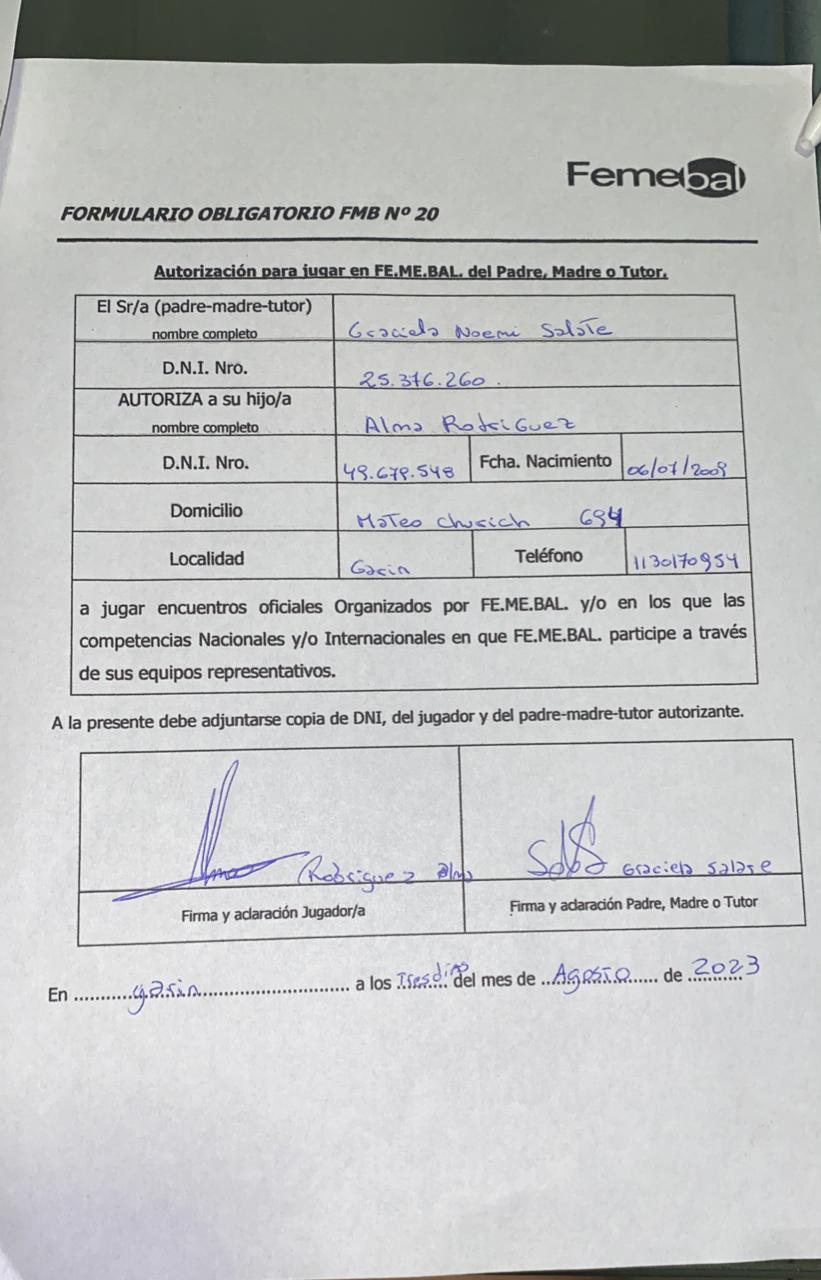 Femebal
FORMULARIO OBLIGATORIO FMB Nº 20
Autorización para jugar en FE.ME.BAL. del Padre, Madre o Tutor.
El Sr/a (padre-madre-tutor)
nombre completo
Graciela Noemi Salate
D.N.I. Nro.
25.376.260.
AUTORIZA a su hijo/a
nombre completo
Alma Rodriguez
D.N.I. Nro.
49.679.548
Fcha. Nacimiento
06/07/2009
Domicilio
Mateo churich 694
Localidad
Garin
Teléfono
1130170954
a jugar encuentros oficiales Organizados por FE.ME.BAL. y/o en los que las
competencias Nacionales y/o Internacionales en que FE.ME.BAL. participe a través
de sus equipos representativos.
A la presente debe adjuntarse copia de DNI, del jugador y del padre-madre-tutor autorizante.
Rodriguez alma
Graciela Salate
Firma y aclaración Jugador/a
Firma y aclaración Padre, Madre o Tutor
En ...........garin.................................. a los Tres días del mes de ..Agosto...... de 2023